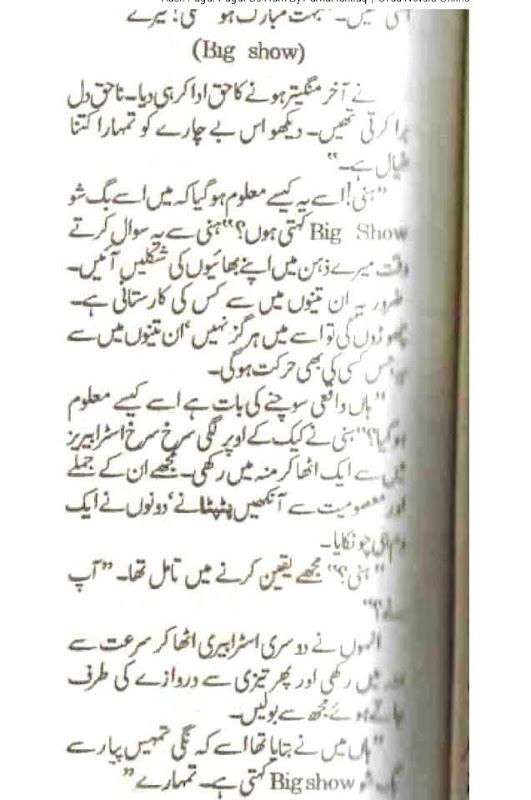 بہت مبارک ہو
(Big show)
نے آخر منگیتر ہونے کا حق ادا کر ہی دیا۔ ناحق دل
برا کرتی تھیں۔ دیکھو اس بے چارے کو تمہارا کتنا
خیال ہے۔"
"ہنی! اسے یہ کیسے معلوم ہو گیا کہ میں اسے بگ شو
Big Show کہتی ہوں؟" ہنی سے یہ سوال کرتے
وقت میرے ذہن میں اپنے بھائیوں کی شکلیں آئیں۔
ضرور یہ ان تینوں میں سے کس کی کارستانی ہے۔
چھوڑوں گی تو اسے میں ہرگز نہیں، ان تینوں میں سے
جس کسی کی بھی حرکت ہو گی۔
"ہاں واقعی سوچنے کی بات ہے اسے کیسے معلوم
ہو گیا؟" ہنی نے کیک کے اوپر لگی سرخ سرخ اسٹرابیریز
میں سے ایک اٹھا کر منہ میں رکھی۔ مجھے ان کے جملے
اور معصومیت سے آنکھیں پٹپٹانے، دونوں نے ایک
دم ہی چونکایا۔
"ہنی؟" مجھے یقین کرنے میں تامل تھا۔ "آپ
نے؟"
انہوں نے دوسری اسٹرابیری اٹھا کر سرعت سے
منہ میں رکھی اور پھر تیزی سے دروازے کی طرف
جاتے ہوئے مجھ سے بولیں۔
"ہاں میں نے بتایا تھا اسے کہ نگی تمہیں پیار سے
بگ شو Big show کہتی ہے۔ تمہارے"